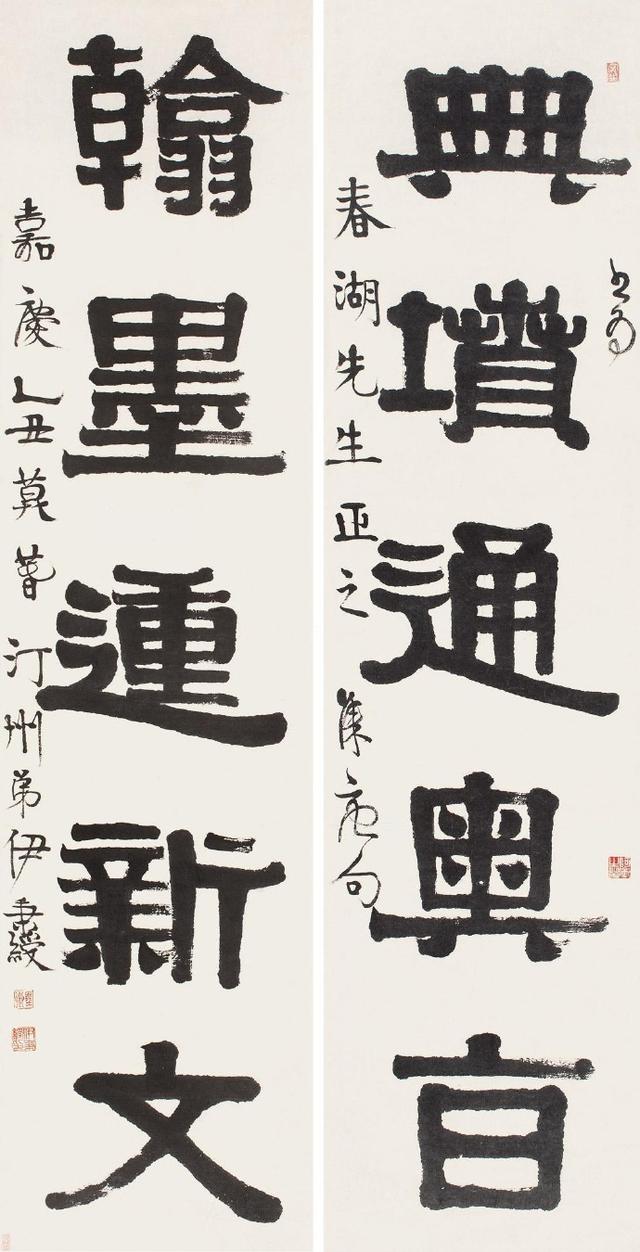 典墳通奧旨
書為
春湖先生正之 集唐句
翰墨運新文
嘉慶乙丑莫春汀州弟伊秉綬